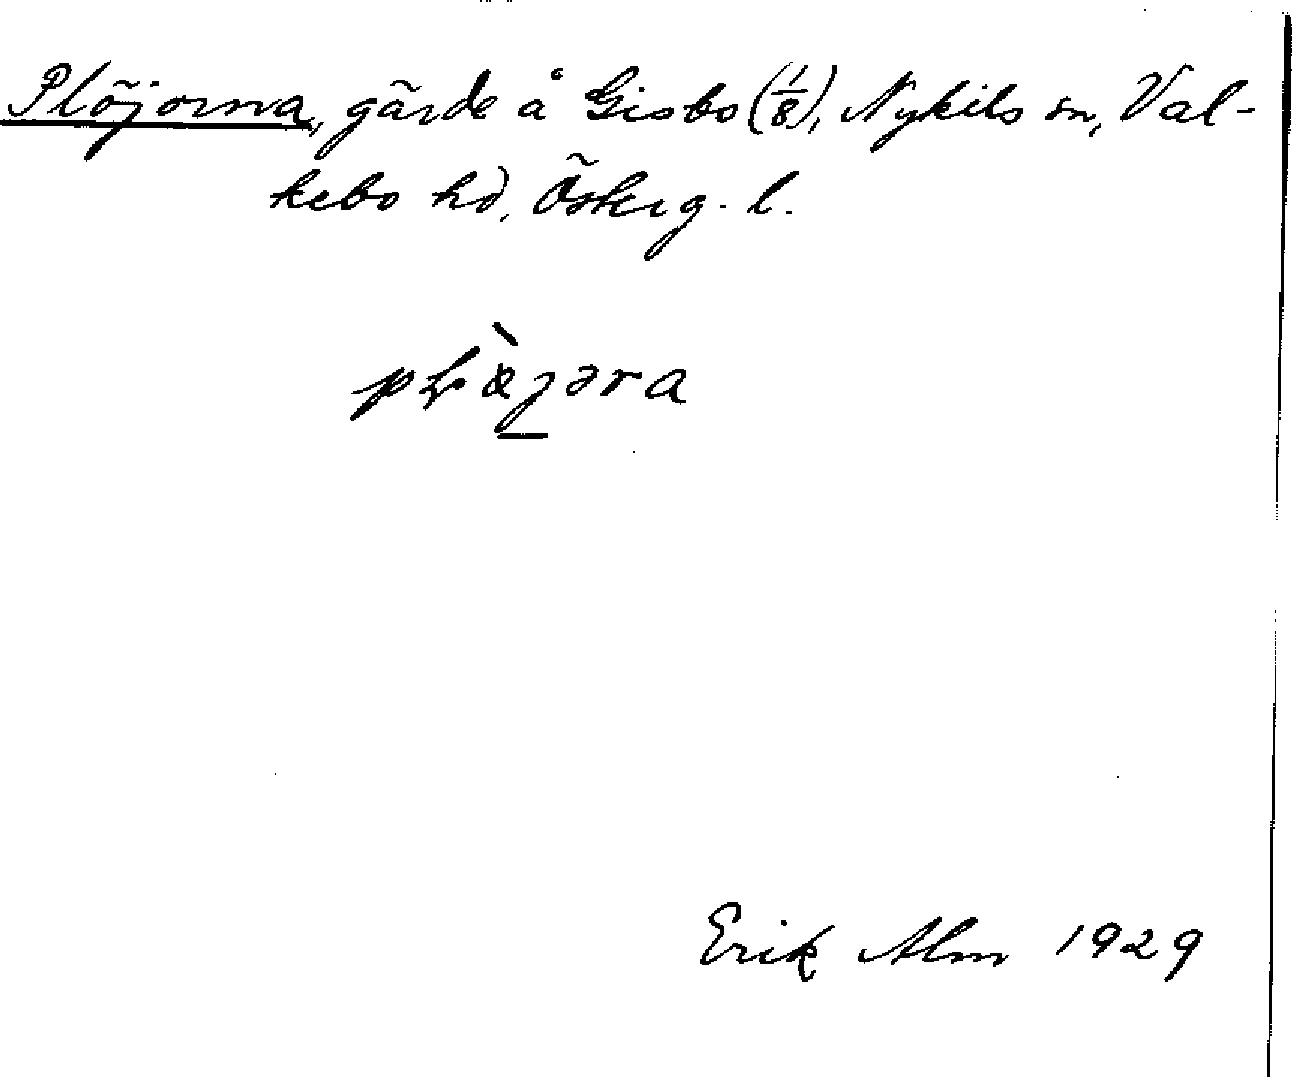 Plöjorna, gärde å Gisbo (1/8), Nykils sn, Val-
kebo hd, Österg. l.
Erik Alm 1929